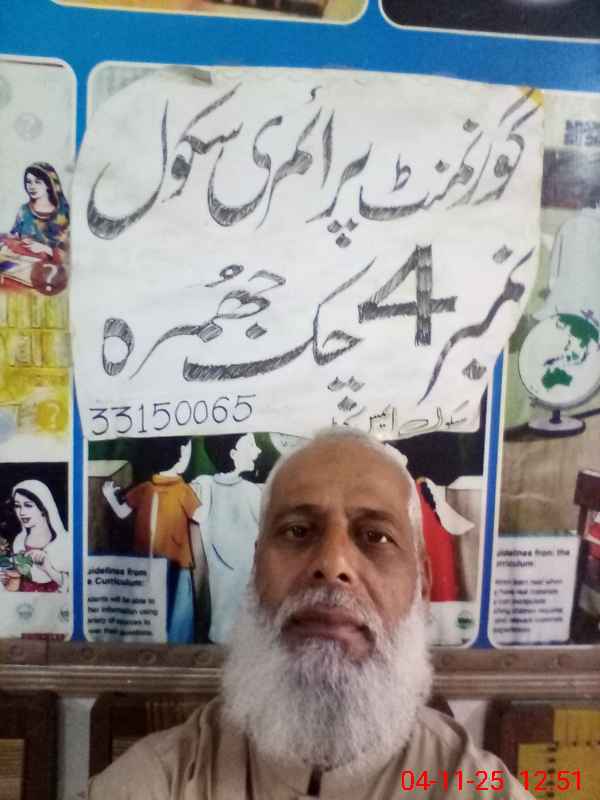 گورنمنٹ پرائمری سکول
نمبر 4 چک جھمرہ
سکول ایمس کوڈ 33150065
idelines from
e Curriculum:
idelines from: the
rriculum:
04-11-25 12:51